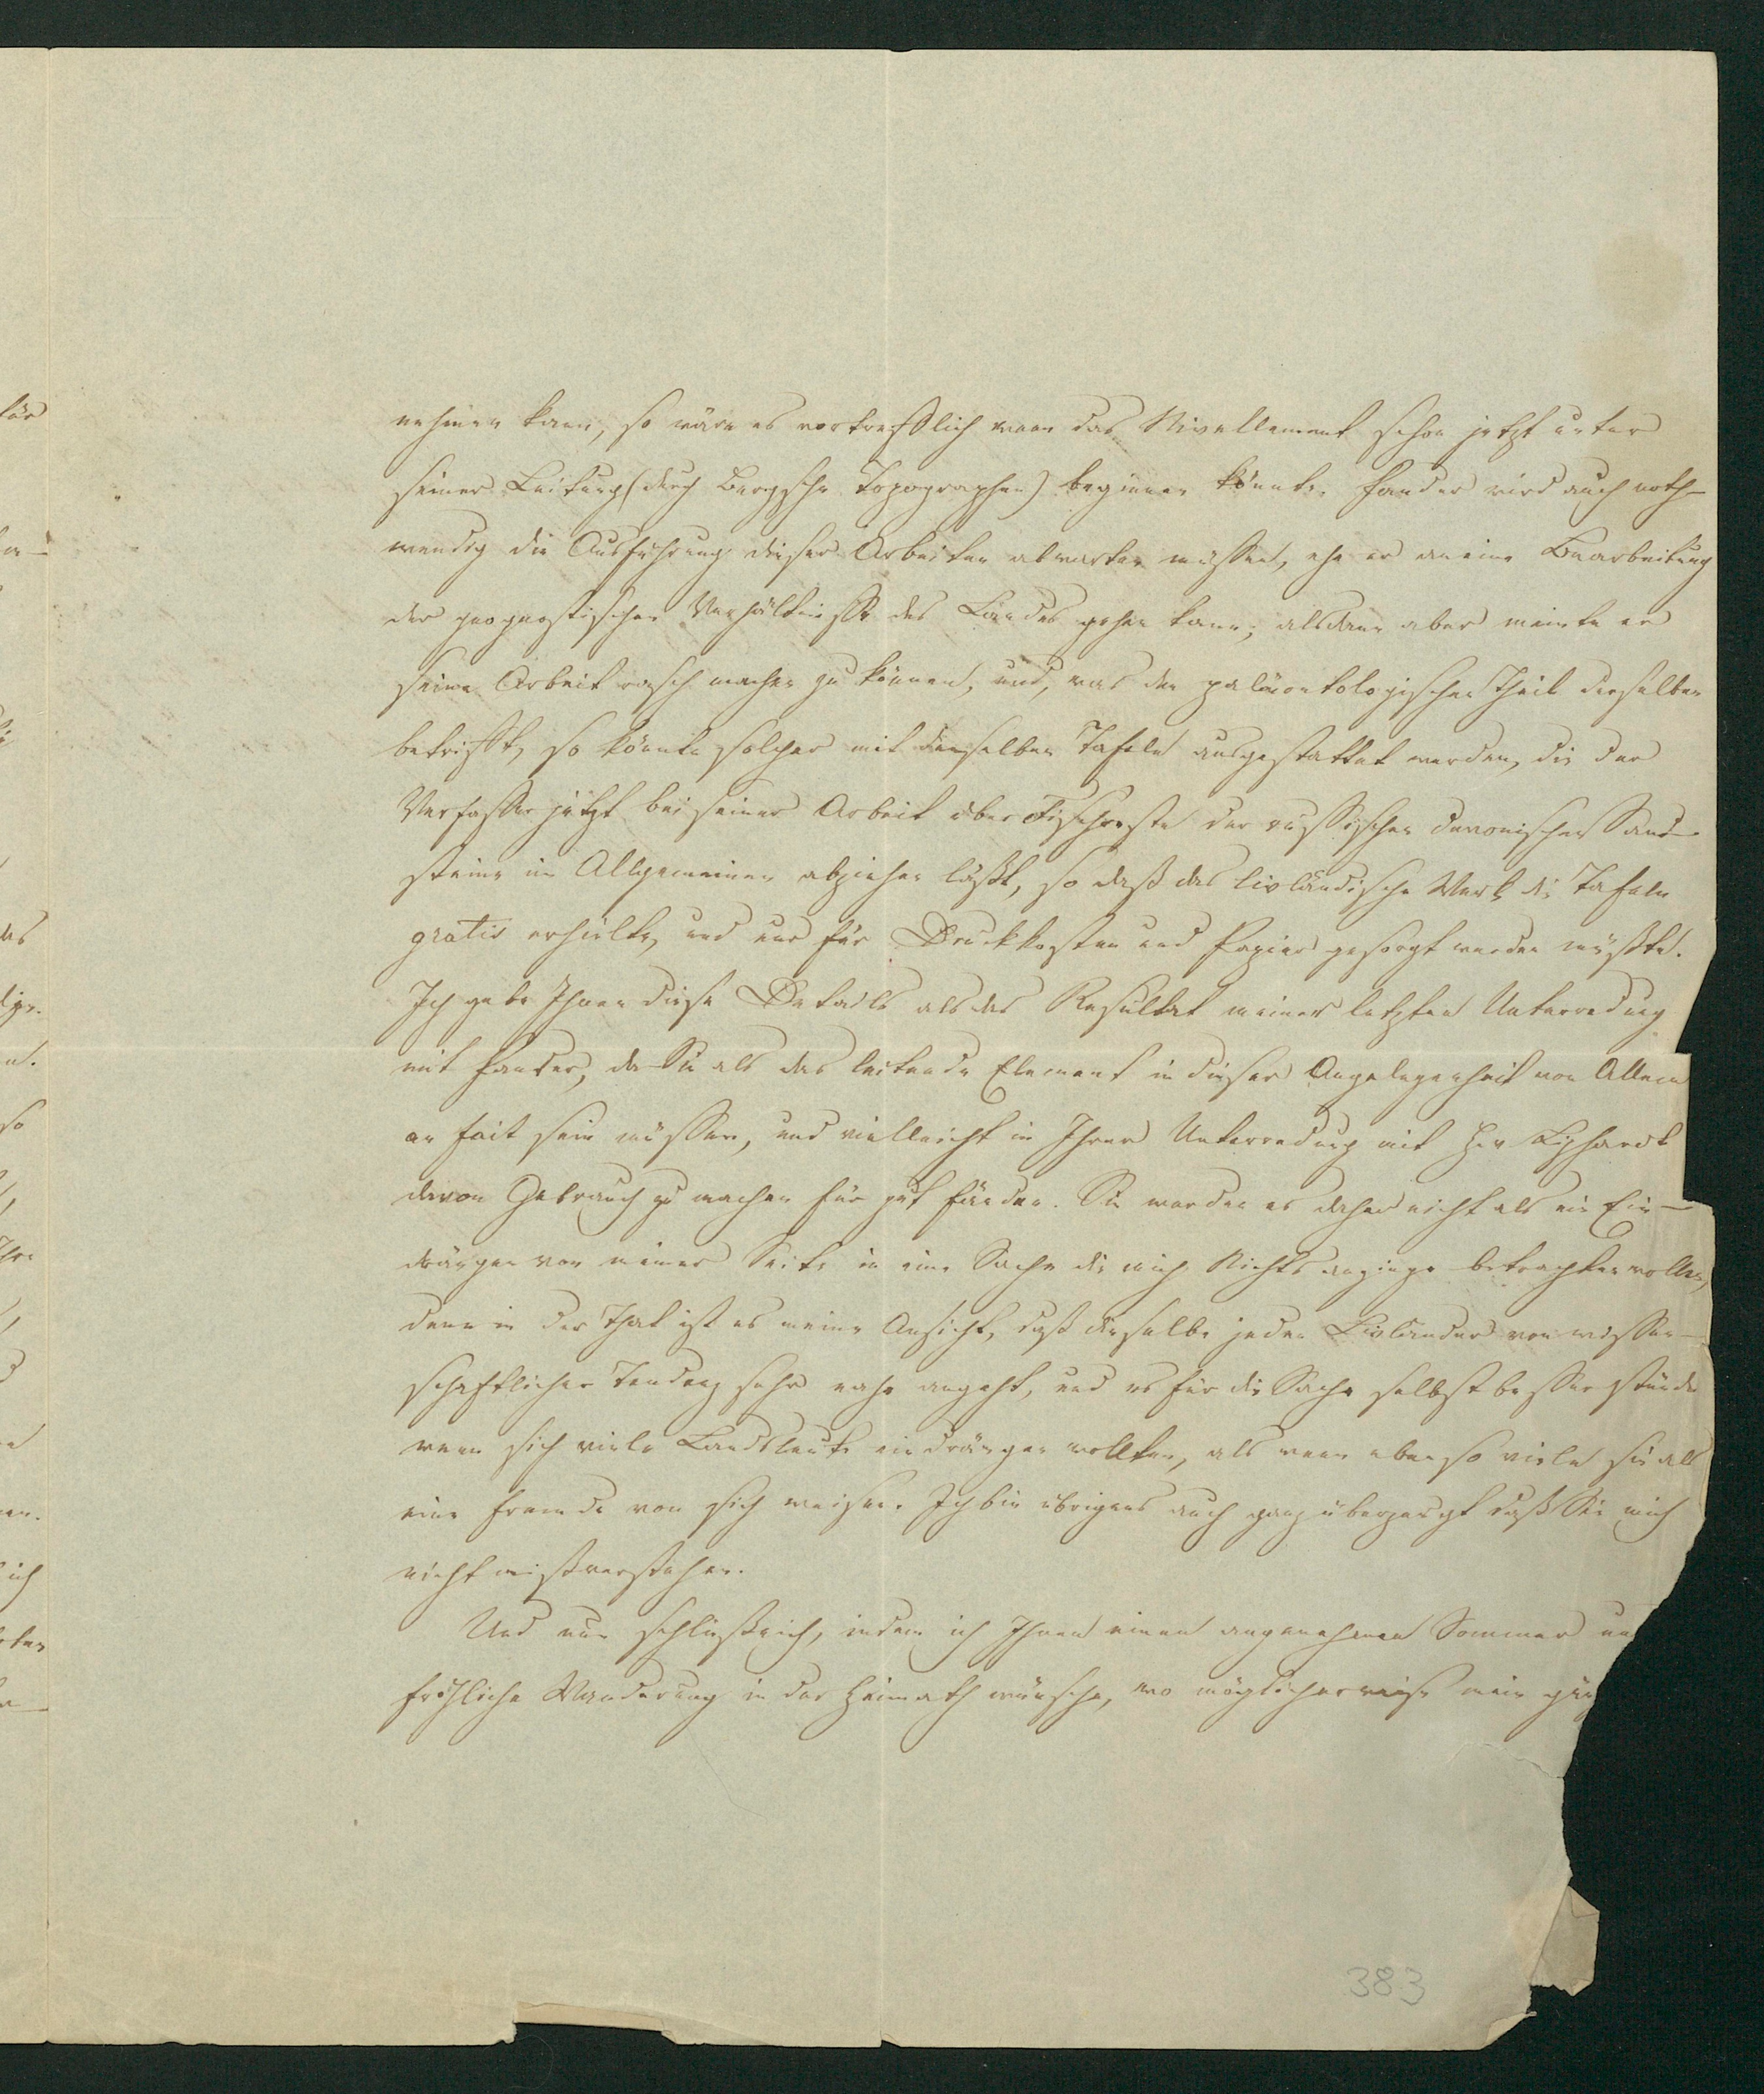 nehmen kann, so wäre es vortrefflich wenn das Nivellement schon jetzt unter
seiner Leitung (durch Bergsche Topographen) beginnen könnte. Pander wird auch noth-
wendig die Ausführung dieser Arbeiten abwarten müssen, ehe er an eine Bearbeitung
der geognostischen Verhältnisse des Landes gehen kann; alsdann aber meinte er
seine Arbeit rasch machen zu können, und, was den paläontologischen Theil derselben
betrifft, so könnte solcher mit denselben Tafeln ausgestattet werden, die der
Verfasser jetzt bei seiner Arbeit über Fischreste der russischen devonischen Sand-
steine im Allgemeinen abziehen läßt, so daß das livländische Werk die Tafeln
gratis erhielte, und nur für Druckkosten und Papier gesorgt werden müßte.
Ich gebe Ihnen diese Details als das Resultat meiner letzten Unterredung
mit Pander, da Sie als das leitende Element in dieser Angelegenheit von Allem
au fait sein müssen, und vielleicht in Ihrer Unterredung mit Hrn Liphardt
davon Gebrauch zu machen für gut fänden. Sie werden es daher nicht als ein Ein-
drängen von meiner Seite in eine Sache die mich Nichts anginge betrachten wollen,
denn in der That ist es meine Ansicht, daß dieselbe jeden Livländer von wissen-
schaftlicher Tendenz sehr nahe angeht, und es für die Sache selbst besser stünde
wenn sich viele Landsleute eindrängen wollten, als wenn eben so viele sie als
eine fremde von sich weisen. Ich bin übrigens auch ganz überzeugt daß Sie mich
nicht mißverstehen.
Und nun schließe ich, indem ich Ihnen einen angenehmen Sommer un
fröhliche Wanderung in der Heimath wünsche, wo möglicherweise mein
383